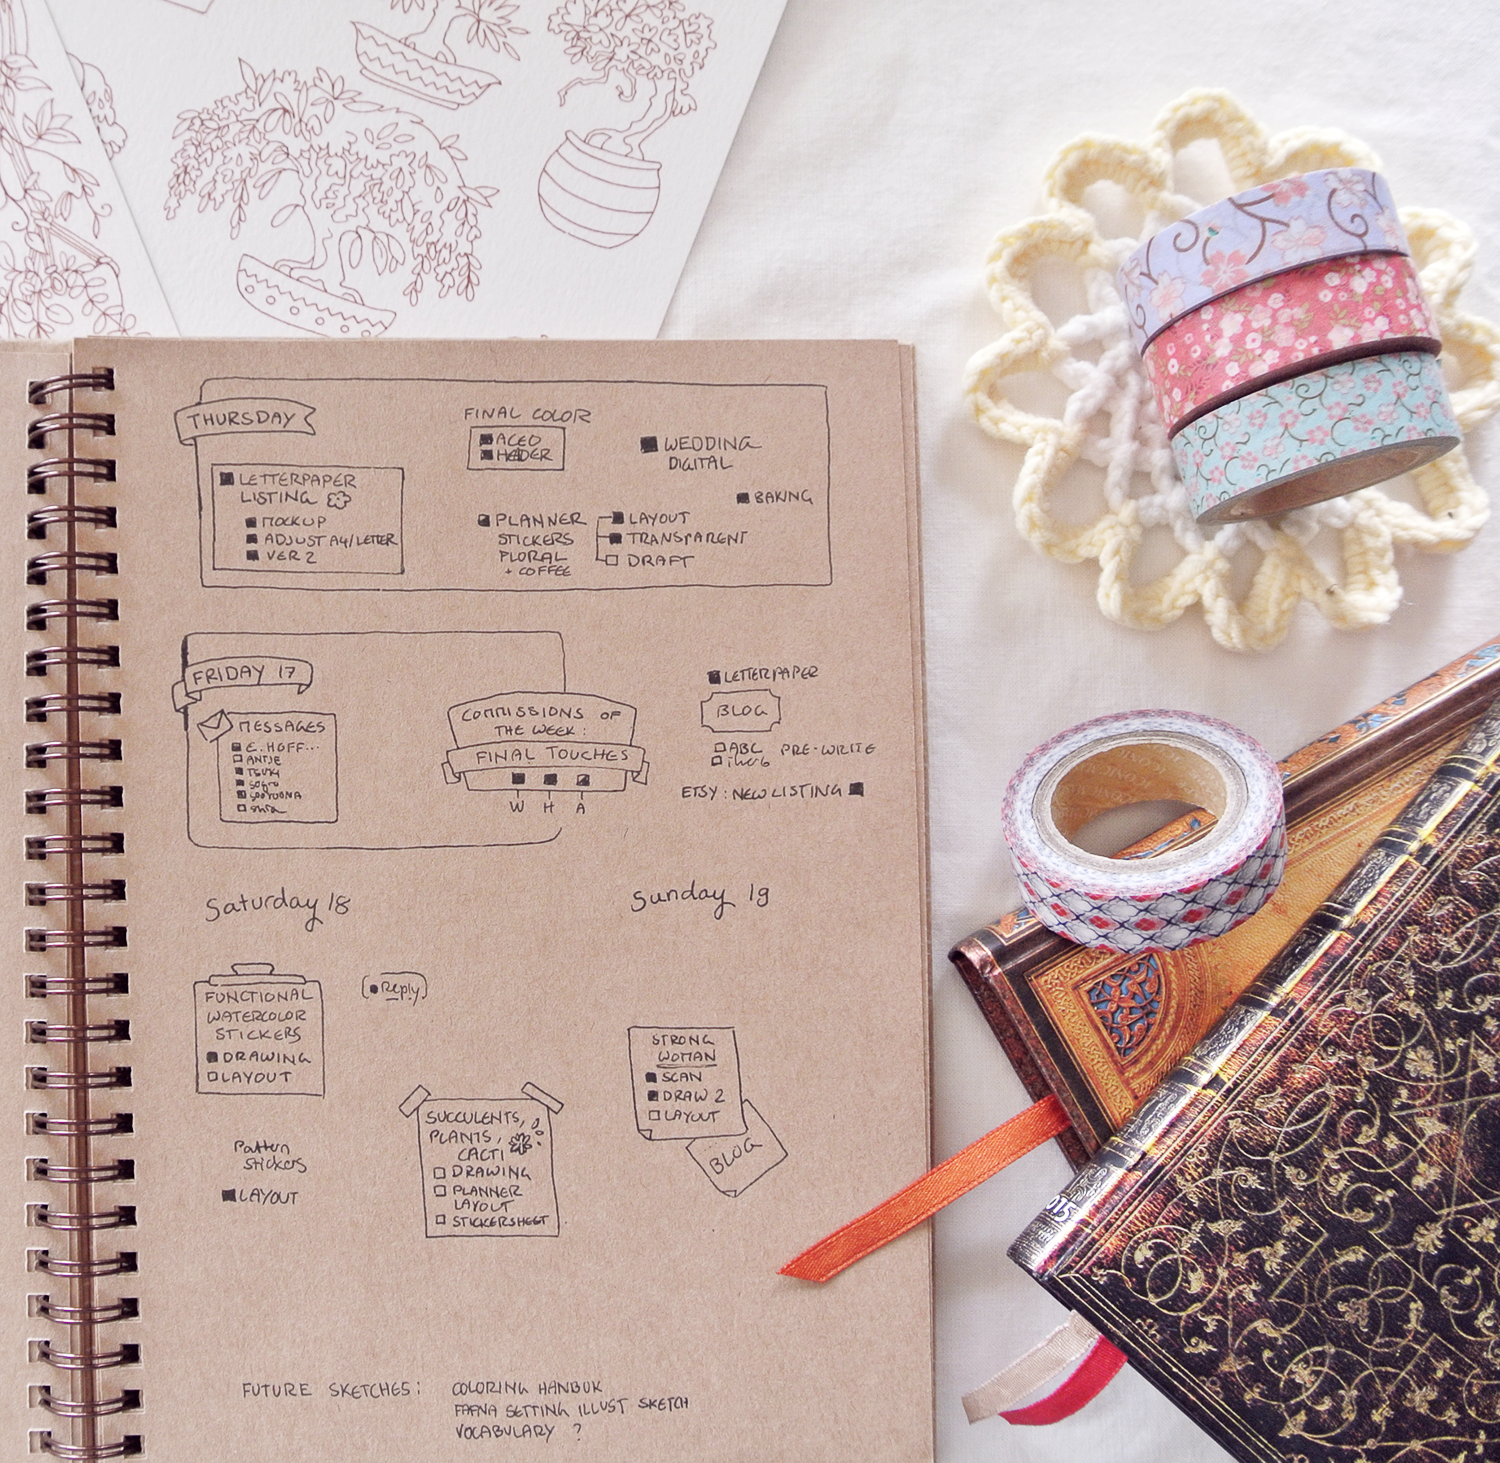 THURSDAY
LETTERPAPER
LISTING
MOCKUP
ADJUST A4/LETTER
VER 2
FINAL COLOR
ACEO
HEADER
PLANNER
STICKERS
FLORAL
+ COFFEE
LAYOUT
TRANSPARENT
DRAFT
WEDDING
DIGITAL
BAKING
FRIDAY 17
MESSAGES
E. HOFF...
ANTJE
COMMISSIONS OF
THE WEEK:
FINAL TOUCHES
W H A
LETTERPAPER
BLOG
ABC PRE-WRITE
ETSY: NEW LISTING
Saturday 18
FUNCTIONAL
WATERCOLOR
STICKERS
DRAWING
LAYOUT
Reply
Pattern
Stickers
LAYOUT
SUCCULENTS,
PLANTS,
CACTI
DRAWING
PLANNER
LAYOUT
STICKERSHEET
Sunday 19
STRONG
WOMAN
SCAN
DRAW 2
LAYOUT
BLOG
FUTURE SKETCHES: COLORING HANBOK
SETTING ILLUST SKETCH
VOCABULARY ?